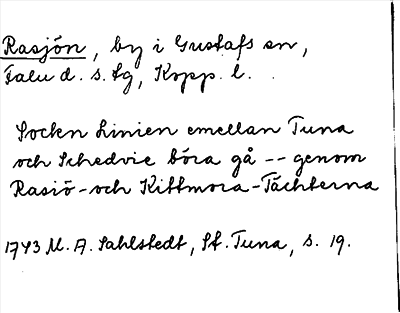 Rasjön, by i Gustafs sn,
Falu d. s. lg, Kopp. l.
Socken Linien emellan Tuna
och Schedvie böra gå -- genom
Rasiö- och Kittmora-Tächterna
1743 M. A. Sahlstedt, St. Tuna, s. 19.